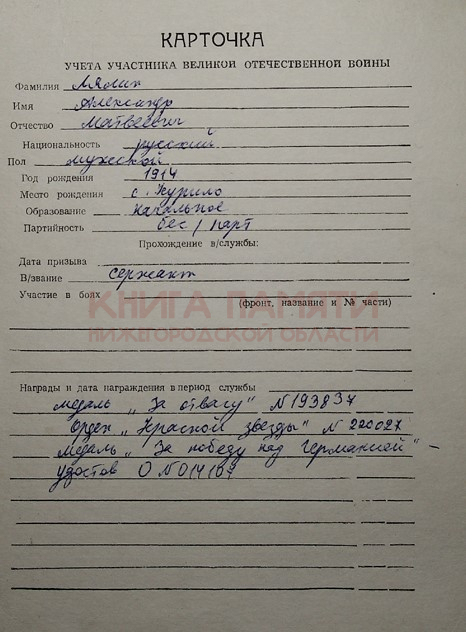 КАРТОЧКА
УЧЕТА УЧАСТНИКА ВЕЛИКОЙ ОТЕЧЕСТВЕННОЙ ВОЙНЫ
Фамилия Лялин
Имя Александр
Отчество Матвеевич
Национальность русский
Пол мужской
Год рождения 1914
Место рождения с. Курило
Образование начальное
Партийность бес / парт
Прохождение в/службы:
Дата призыва
В/звание сержант
Участие в боях
(фронт, название и № части)
КНИГА ПАМЯТИ
НИЖЕГОРОДСКОЙ ОБЛАСТИ
Награды и дата награждения в период службы
медаль „За отвагу" №193837
Орден „Красной звезды" № 220027
медаль „За победу над Германией" –
удостов О №014167